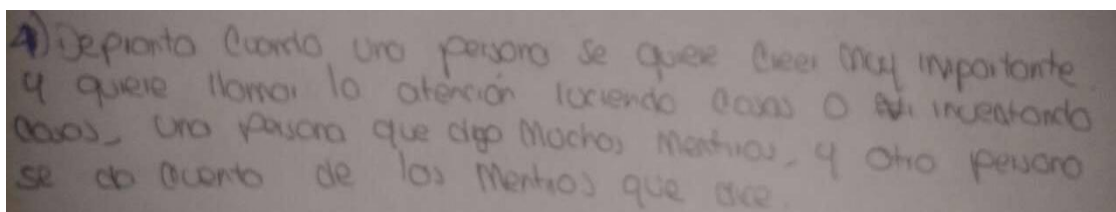 4) Depronto cuando una persona se quiere creer muy importante
y quiere llamar la atención luciendo cosas o inventando
cosas, una persona que diga muchas mentiras, y otra persona
se da cuenta de las mentiras que dice.